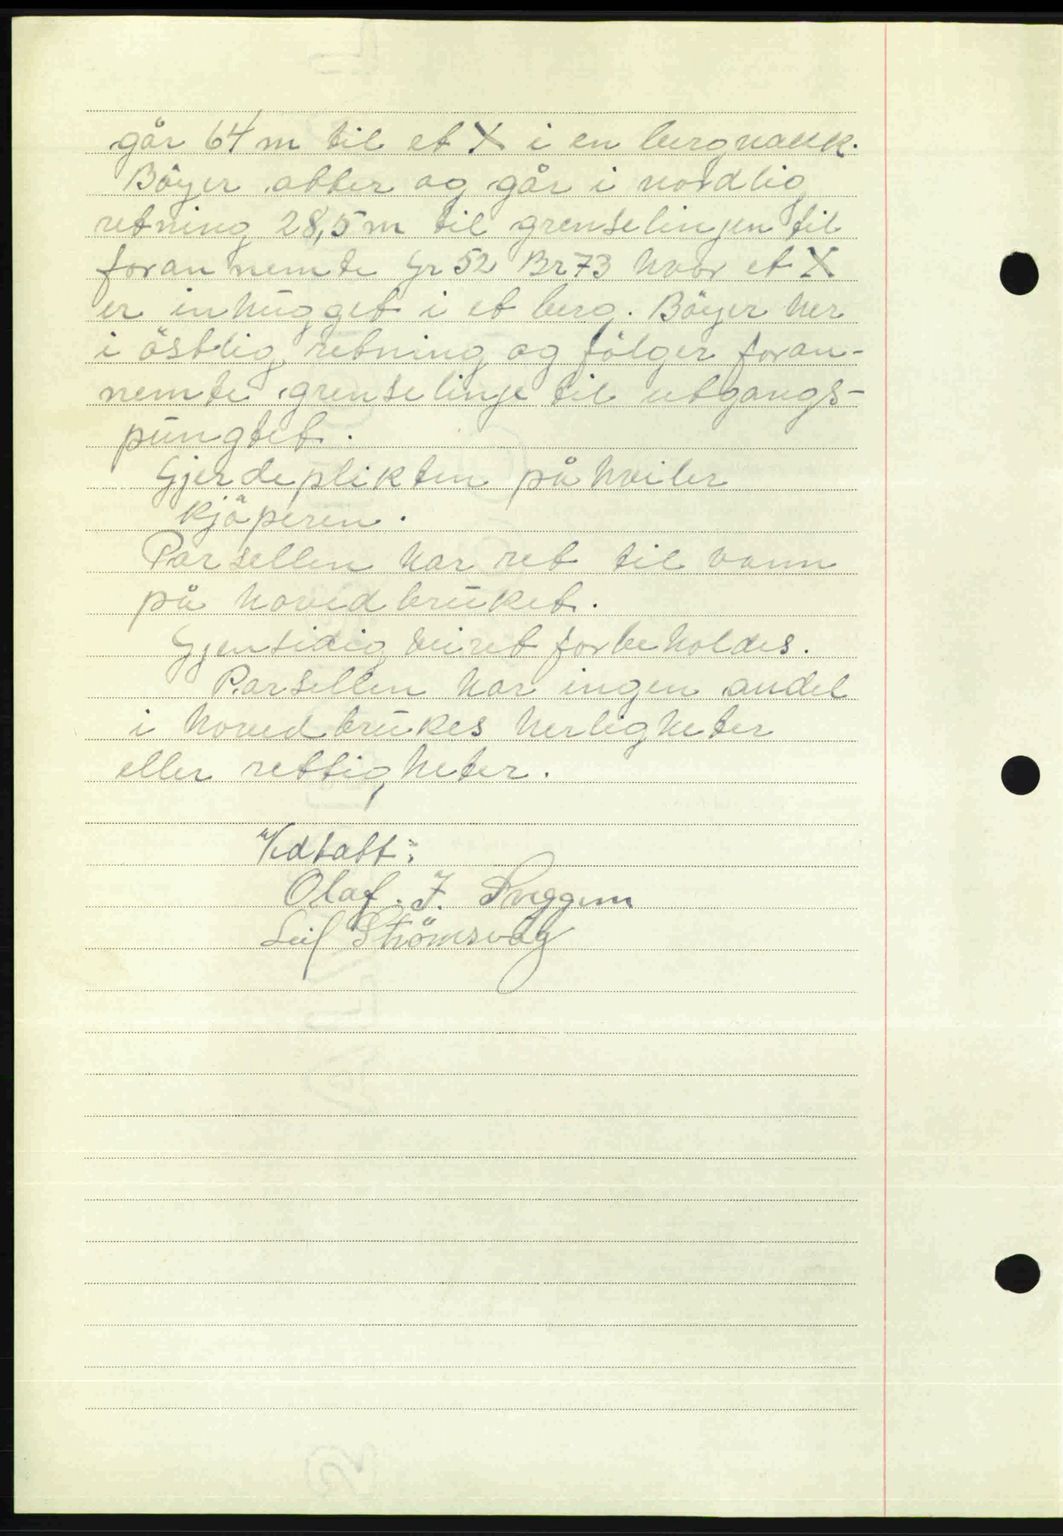 går 64 m til et X i en bergnakk.
Böyer atter og går i nordlig
retning 28,5 m til grenselinjen til
foran nemte Gr 52 Br 73 hvor et X
er inhugget i et berg. Böyer her
i östlig retning og fölger foran-
nemte grenselinje til utgangs-
pungtet.
Gjerdeplikten påhviler
kjöperen.
Parsellen har ret til vann
på hovedbruket.
Gjensidig veiret forbeholdes.
Parsellen har ingen andel
i hovedbrukes herligheter
eller rettigheter.
Vedtatt:
Olaf. J.
Leif Strömsvåg